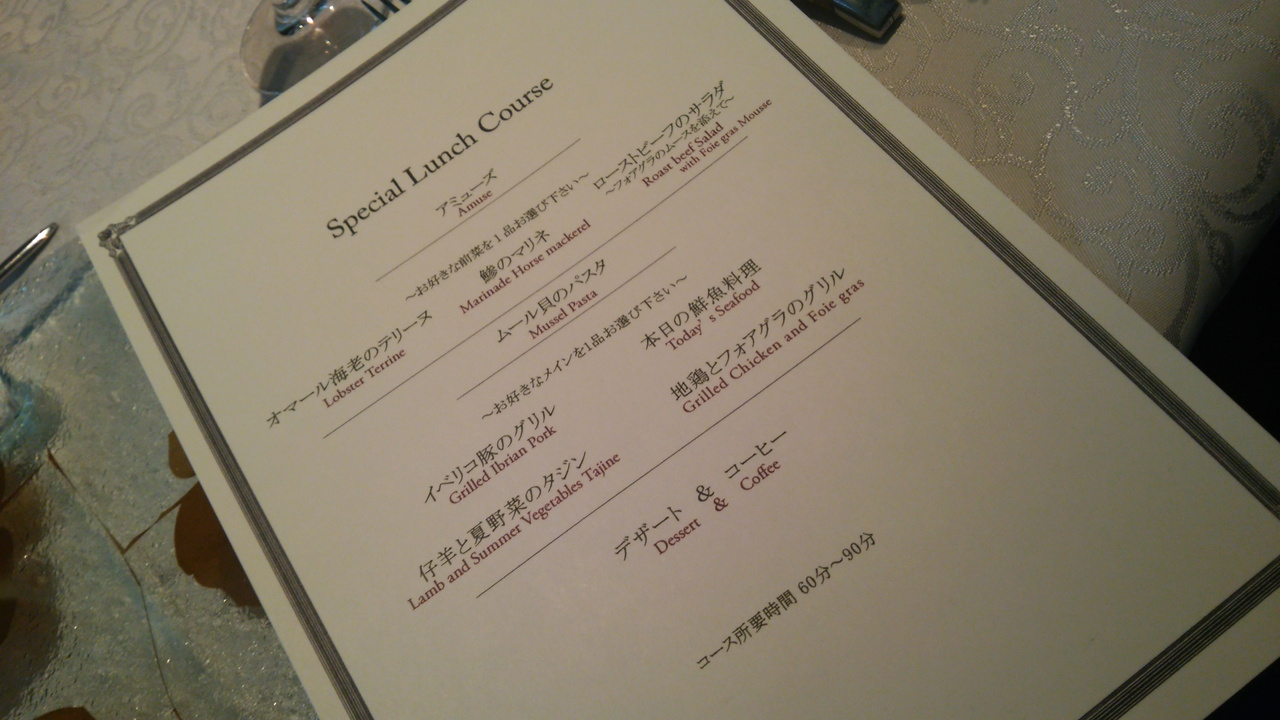 Special Lunch Course
アミューズ
Amuse
~お好きな前菜を1品お選び下さい~
オマール海老のテリーヌ
Lobster Terrine
鯵のマリネ
Marinade Horse mackerel
ローストビーフのサラダ
~フォアグラのムースを添えて~
Roast beef Salad
with Foie gras Mousse
ムール貝のパスタ
Mussel Pasta
~お好きなメインを1品お選び下さい~
イベリコ豚のグリル
Grilled Ibrian Pork
本日の鮮魚料理
Today's Seafood
仔羊と夏野菜のタジン
Lamb and Summer Vegetables Tajine
地鶏とフォアグラのグリル
Grilled Chicken and Foie gras
デザート & コーヒー
Dessert & Coffee
コース所要時間 60分~90分